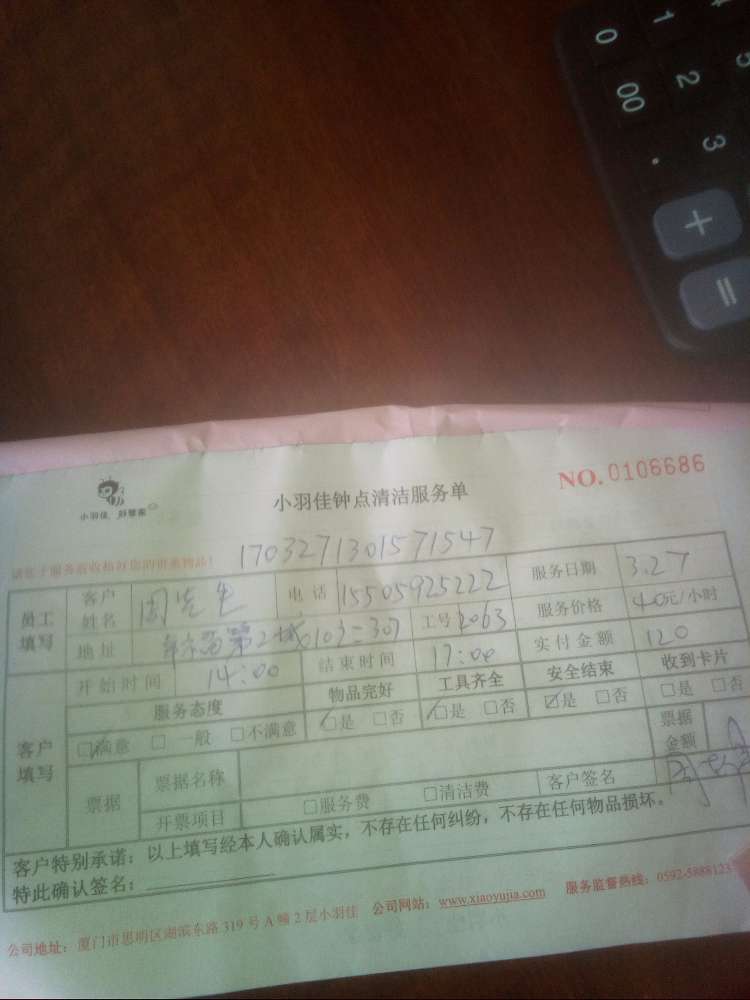 0 1 4
00 2 5
. 3
+
=
小羽佳钟点清洁服务单
NO. 0106686
小羽佳
1703271301571547
员工填写
客户姓名 周先生
电话 15505925222
服务日期 3.27
地址
工号 2063
服务价格 40元/小时
客户填写
开始时间 14:00
结束时间 17:00
实付金额 120
服务态度
物品完好
工具齐全
安全结束
收到卡片
☑满意 □一般 □不满意
☑是 □否
☑是 □否
☑是 □否
□是 □否
票据
票据名称
票据金额
开票项目
□服务费 □清洁费
客户签名
客户特别承诺：以上填写经本人确认属实，不存在任何纠纷，不存在任何物品损坏。
特此确认签名：
公司地址：厦门市思明区湖滨东路319号A幢2层小羽佳 公司网站：www.xiaoyujia.com 服务监督热线：0592-5888123